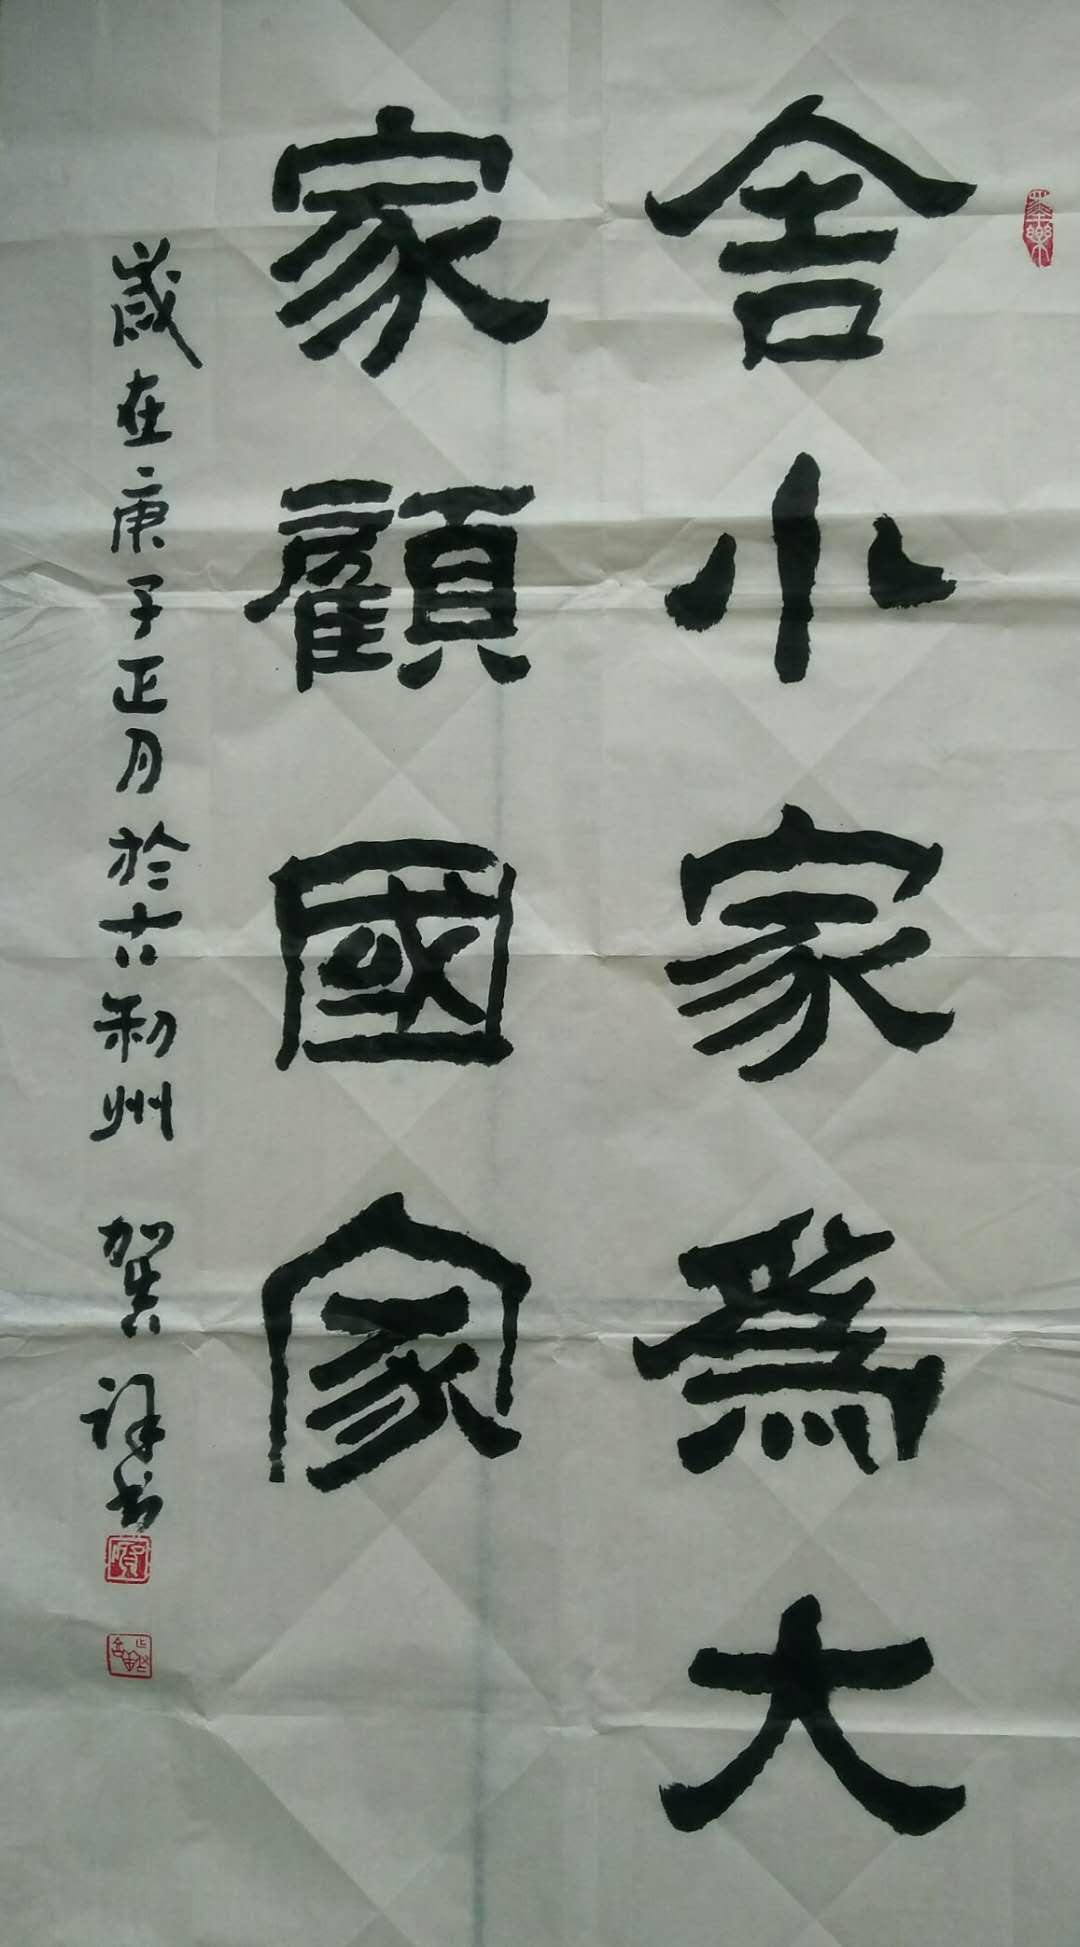 舍小家爲大
家顧國家
歲在庚子正月於古利州 賀祥书